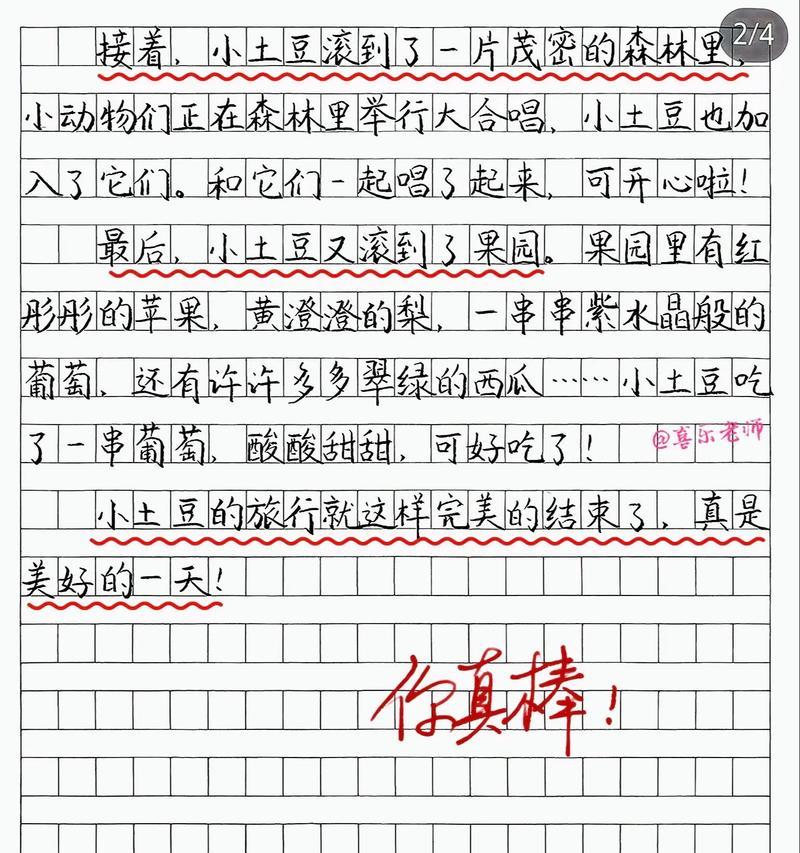 2/4
接着，小土豆滚到了一片茂密的森林里，
小动物们正在森林里举行大合唱，小土豆也加
入了它们。和它们一起唱了起来，可开心啦！
最后，小土豆又滚到了果园。果园里有红
彤彤的苹果，黄澄澄的梨，一串串紫水晶般的
葡萄，还有许许多多翠绿的西瓜……小土豆吃
了一串葡萄，酸酸甜甜，可好吃了！
@喜乐老师
小土豆的旅行就这样完美的结束了，真是
美好的一天！
你真棒！